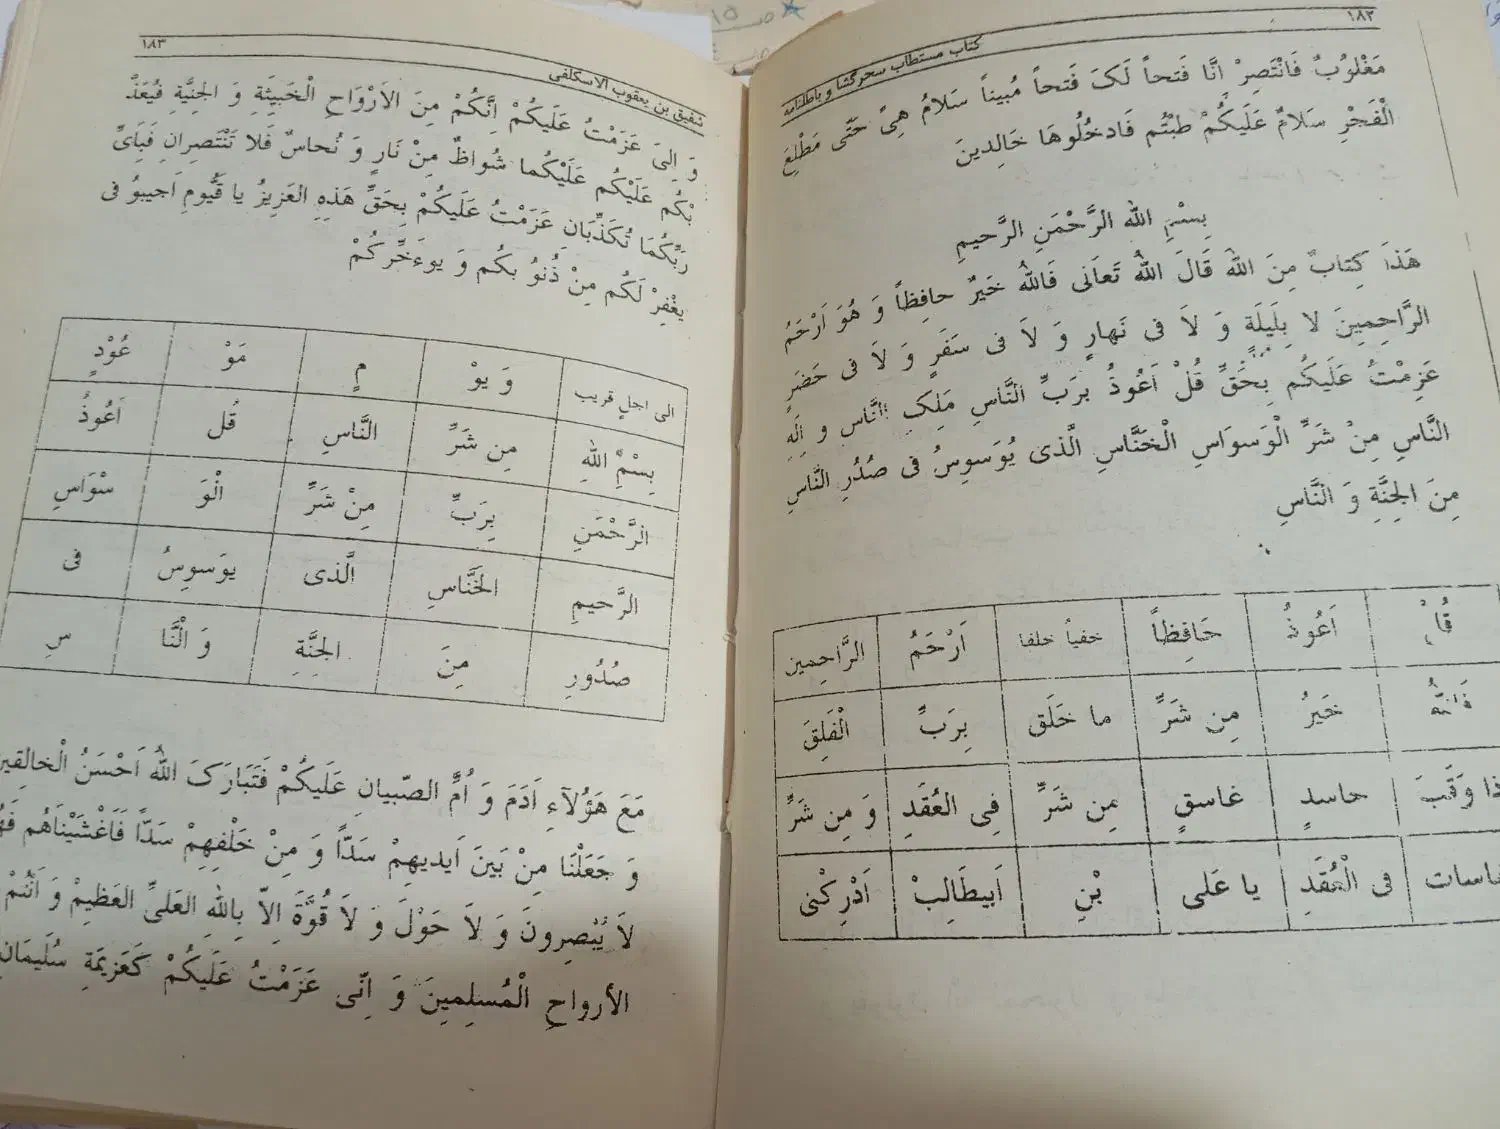 ۱۸۲
کتاب مستطاب سحرگشا و باطلنامه
مَغْلُوبٌ فَانْتَصِرْ اِنَّا فَتَحاً لَکَ فَتحاً مُبیناً سَلامُ هِیَ حَتّی مَطْلِعَ
الْفَجْرِ سَلامٌ عَلَیکُمْ طِبْتُم فَادخُلُوهَا خَالِدینَ
بِسْمِ اللّٰهِ الرَّحْمَنِ الرَّحیمِ
هَذَا کِتابٌ مِنَ اللّٰهِ قَالَ اللّٰهُ تَعاَنی فَاللّٰهُ خَیرٌ حافِظاً وَ هُوَ اَرْحَمُ
الرَّاحِمِینَ لا بِلَیلَةٍ وَ لاَ فی نَهارٍ وَ لاَ فی سَفَرٍ وَ لاَ فی حَضَرٍ
عَزِمْتُ عَلَیکُم بِحَقِّ قُلْ اَعُوذُ بِرَبِّ النَّاسِ مَلِکِ النَّاس و اِلَهِ
النَّاسِ مِنْ شَرِّ الْوَسوَاسِ الْخَنَّاسِ الَّذی یُوَسوِسُ فی صُدُرِ النَّاسِ
مِنَ الجِنَّةِ وَ النَّاسِ
قُل اَعُوذُ حَافِظاً خفیاً خلفا اَرْحَمُ الرَّاحِمین
فَاللّٰهُ خَیرُ مِن شَرِّ ما خَلَق بِرَبِّ الْفَلِقَ
ذا وَقَبَ حاسدٍ غاسقٍ مِن شَرِّ فِی العُقَدِ وَ مِن شَرِّ
اسات فی الْعُقَدِ یا عَلی بْنِ اَبیطَالِبْ اَدْرِکْنی
۱۸۳
شفیق بن یعقوب الاسکلفی
وَ اِلیَ عَزَمْتُ عَلَیکُمْ اِنَّکُمْ مِنَ الاَرْوَاحِ الْخَبیثَةِ وَ الجِنِّیَةِ فَیُعَذْ
بْکُم عَلَیْکُم عَلَیْکُما شُواظٌ مِنْ نَارٍ وَ نُحاسٌ فَلا تَنْتَصِرانِ فَبَاِیِّ
رَبِّکُمَا تُکَذِّبَانِ عَزَمْتُ عَلَیکُمْ بِحَقِّ هَذِهِ العَزیزُ یا قَّیُومِ اَجیبُو فی
یغْفِرْ لَکُم مِنْ ذُنُو بکُم وَ یوءَخِّرکُمْ
الی اجلٍ قریب وَ یوْ مٍ مَوْ عُوْدٍ
بِسْمِ اللّٰهِ مِن شَرِّ النَّاسِ قُل اَعُوذُ
الرَّحْمَنِ بِرَبِّ مِنْ شَرِّ الْوَ سْوَاسِ
الرَّحیمِ الخَنَّاسِ الَّذی یوَسوِسُ فی
صُدُورِ مِنَ الجِنَّةِ وَ الْنَّا سِ
مَعَ هَؤُلآءِ اَدَمَ وَ اُمَّ الصّبیانِ عَلَیکُمْ فَتَبَارَکَ اللّٰهُ اَحْسَنُ الْخالِقین
وَ جَعَلْنَا مِنْ بَینَ اَیدیهِمْ سَدّاً وَ مِنْ خَلْفِهِمْ سَدّاً فَاَغْشَیْناَهُم فَهُ
لاَ یُبْصِرونَ وَ لاَ حَوْلَ وَ لاَ قُوَّةَ اِلاّ بِاللّٰهِ العَلیِّ العَظیمْ وَ اَنْتُمْ
الأَرواحِ الْمُسلِمِینَ وَ اِنّی عَزَمْتُ عَلَیکُمْ کَعَزیمَةِ سُلَیمَانَ